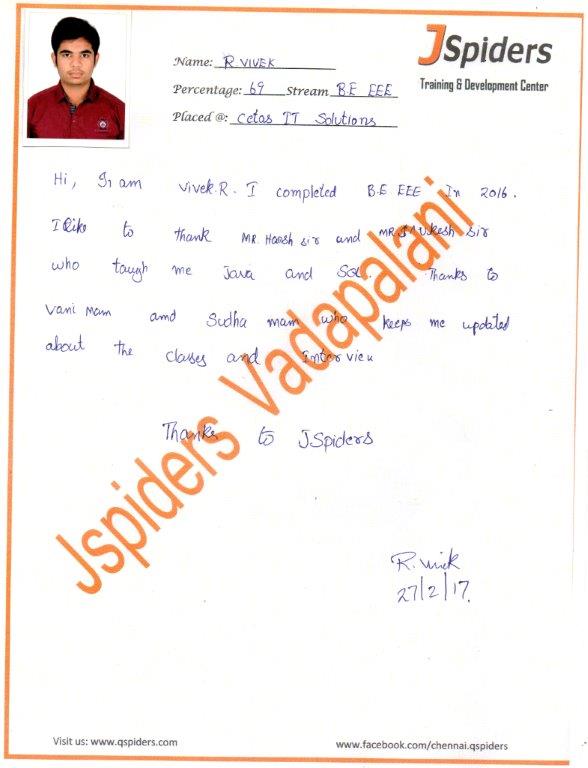 JSpiders
Training & Development Center
Name: R VIVEK
Percentage: 69 Stream B.E EEE
Placed @: Cetas IT Solutions
Hi, I am Vivek.R. I completed B.E EEE In 2016.
I like to thank MR. Harsh sir and MR. Mukesh sir
who taugh me Java and SQL. Thanks to
Vani Mam and Sudha mam who keeps me updated
about the classes and Interview
Thanks to JSpiders
R. Vivek
27/2/17.
Jspiders Vadapalani
Visit us: www.qspiders.com
www.facebook.com/chennai.qspiders